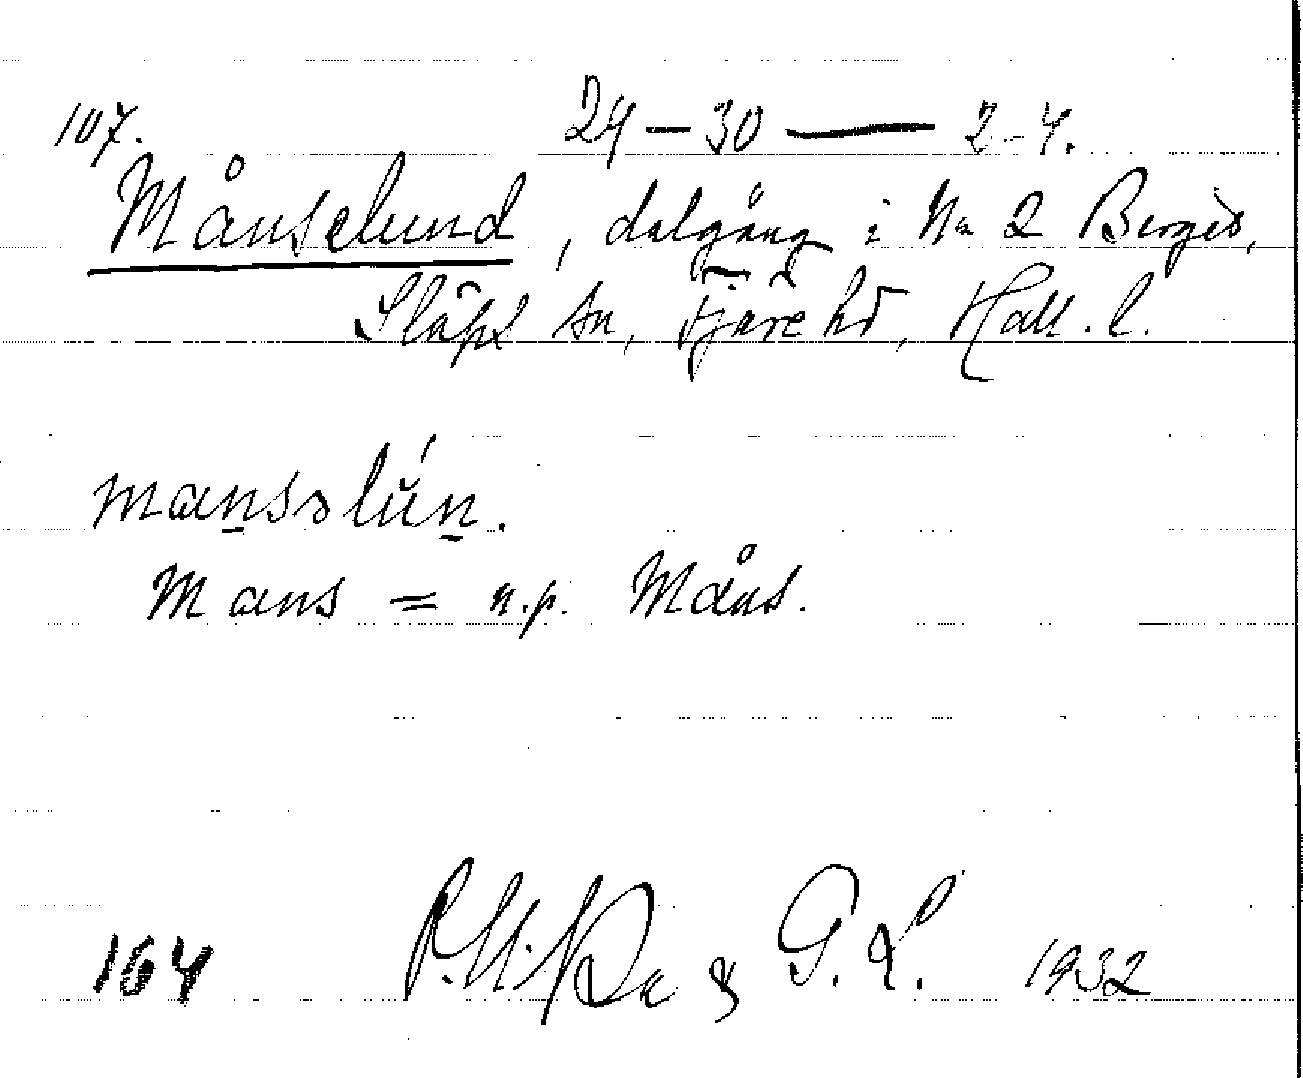 107. 24 – 30 — 2-4.
Månselund, dalgång i No 2 Berget,
Släps sn, Fjäre hd, Hall. l.
mansslún.
Mans = n.p. Måns.
164 & G. L. 1932